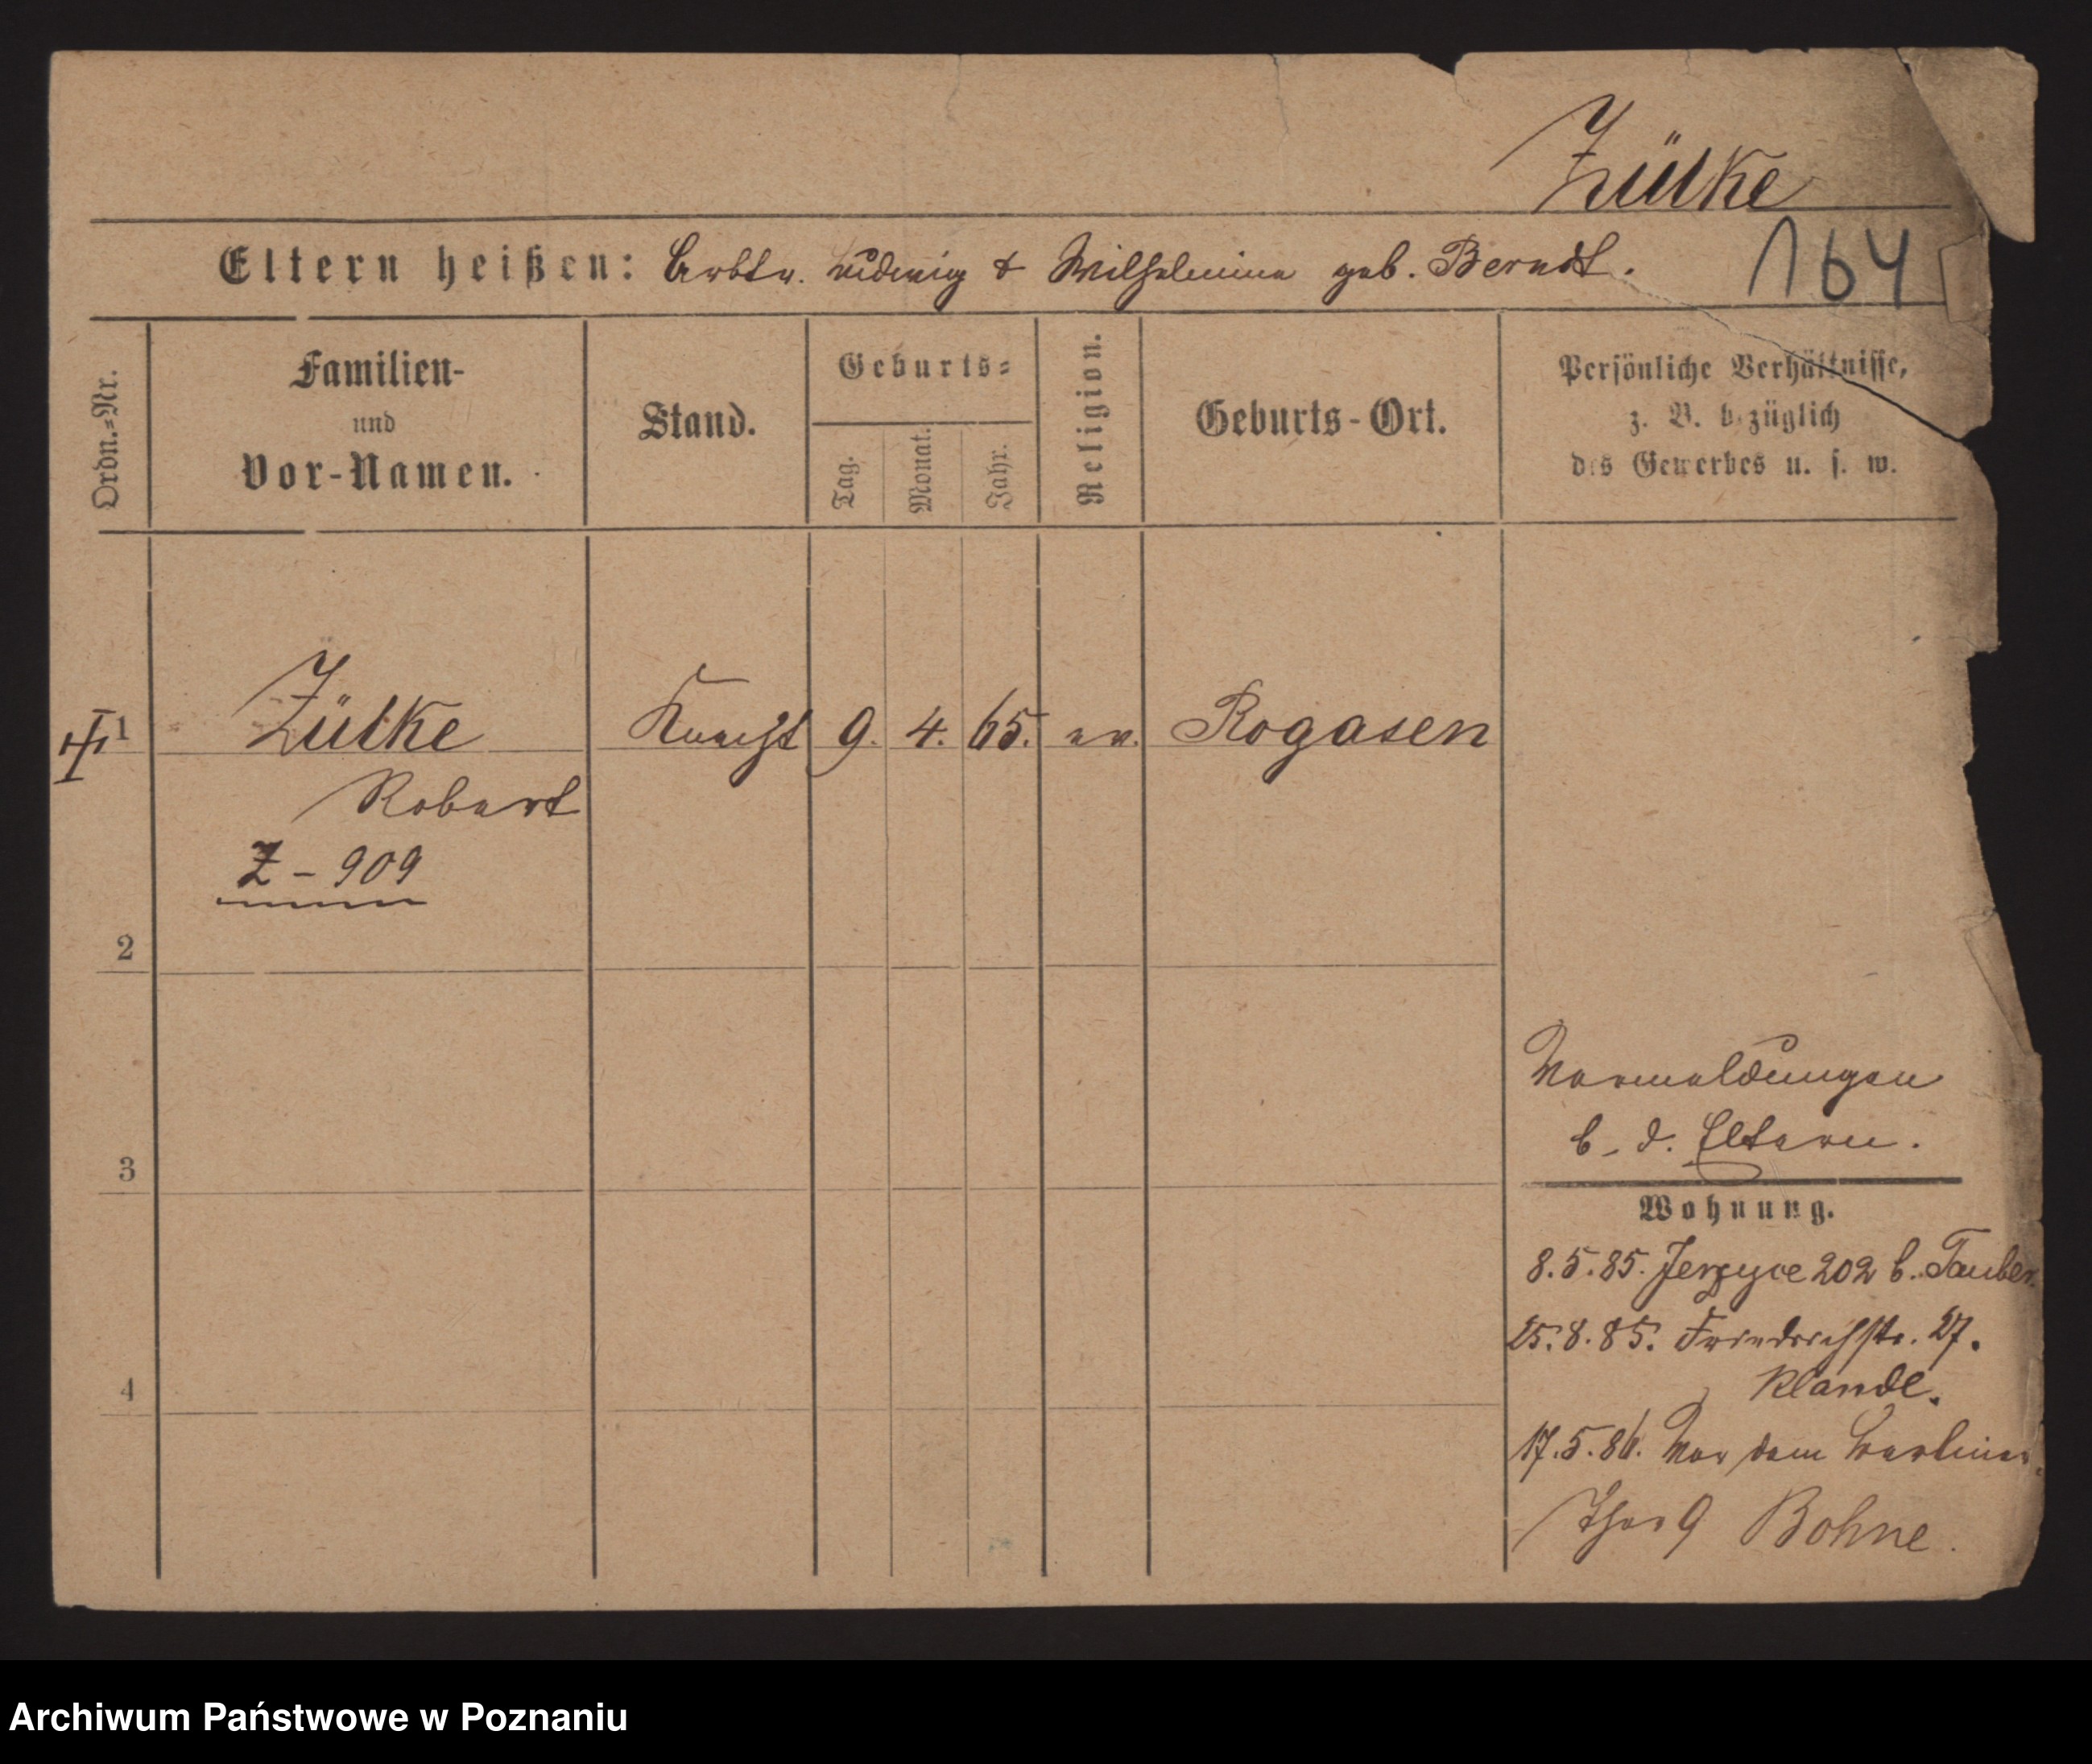 Zütke
164
Eltern heißen: Arbtr. Ludwig & Wilhelmine geb. Berndt.
Ordn.=Nr.
Familien-
und
Vor-Namen.
Stand.
Geburts=
Tag.
Monat.
Jahr.
Religion.
Geburts-Ort.
Persönliche Verhältnisse,
z. B. bezüglich
des Gewerbes u. s. w.
1 Zütke Knecht 9. 4. 65. ev. Rogasen
Robert
Z - 909
2
3
4
Vormeldungen
b. d. Eltern.
Wohnung.
8.5.85. Jerzyce 202 b. Tauber.
25.8.85. Friedrichstr. 27.
Klande.
17.5.86. Vor dem Berliner
Thor 9 Bohne.
Archiwum Państwowe w Poznaniu